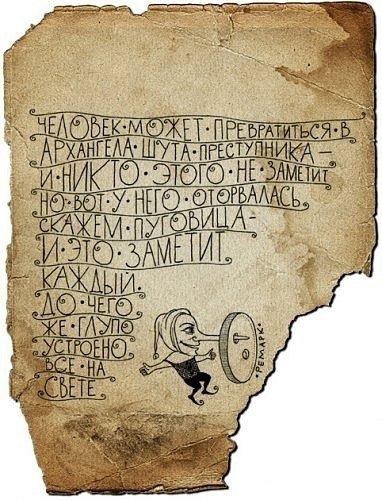 ЧЕЛОВЕК•МОЖЕТ•ПРЕВРАТИТЬСЯ•В
АРХАНГЕЛА•ШУТА•ПРЕСТУПНИКА—
И•НИКТО•ЭТОГО•НЕ•ЗАМЕТИТ
НО•ВОТ•У•НЕГО•ОТОРВАЛАСЬ
СКАЖЕМ•ПУГОВИЦА—
И•ЭТО•ЗАМЕТИТ
КАЖДЫЙ.
ДО•ЧЕГО
ЖЕ•ГЛУПО
УСТРОЕНО
ВСЕ•НА
СВЕТЕ
•РЕМАРК•